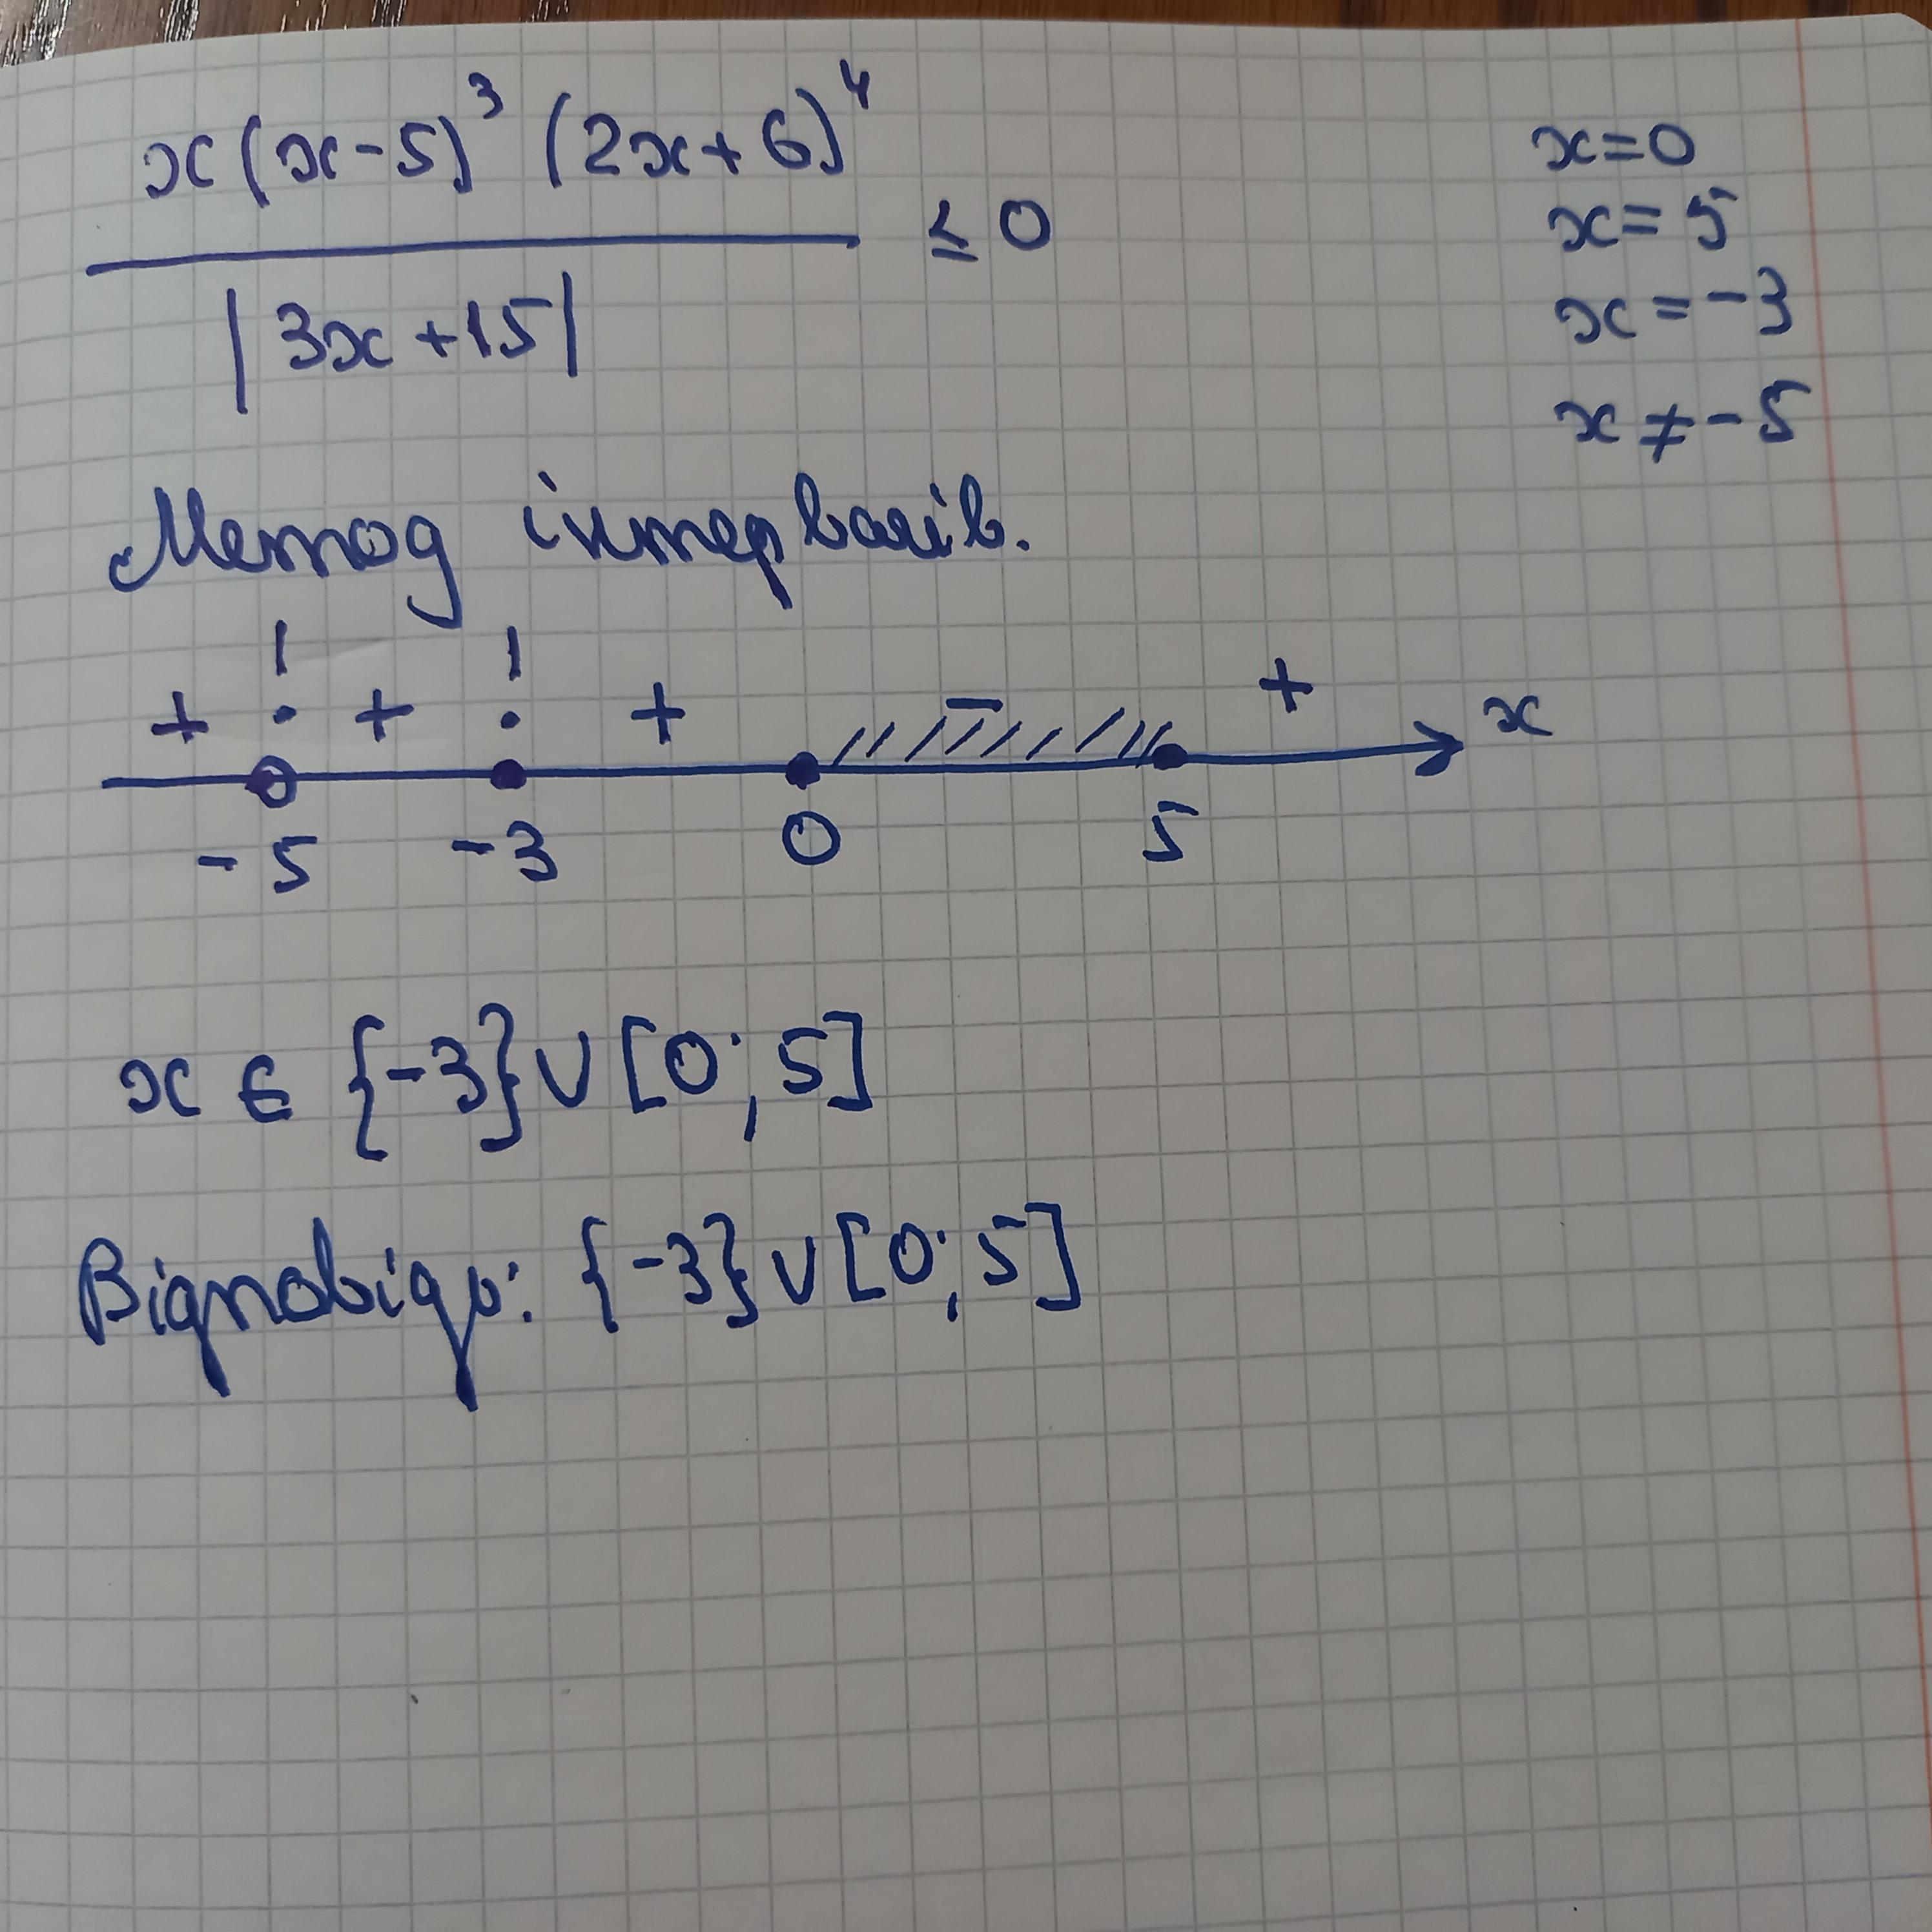 x(x-5)³ (2x+6)⁴
───────────── ≤ 0
|3x+15|
x=0
x=5
x=-3
x≠-5
Метод інтервалів.
+ ! + ! + - + x
-5 -3 0 5
x ∈ {-3}∪[0;5]
Відповідь: {-3}∪[0;5]